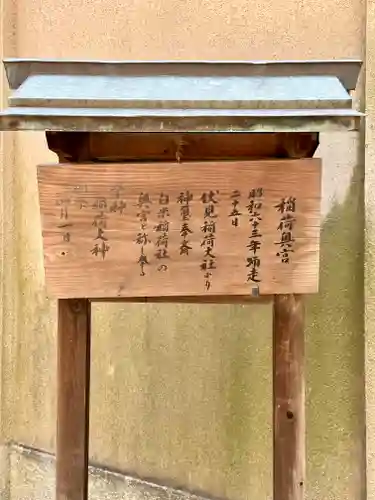 稲荷奥宮
昭和六十三年師走
二十五日
伏見稲荷大社より
神璽奉斎
白米稲荷社の
奥宮と称し奉る
祭神
稲荷大神
月一日